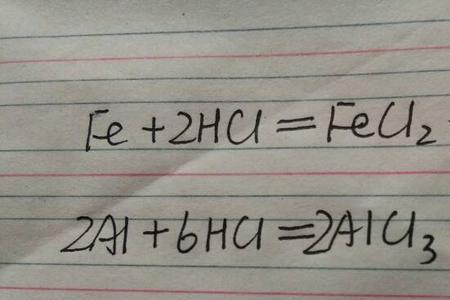 Fe+2HCl=FeCl2
2Al+6HCl=2AlCl3